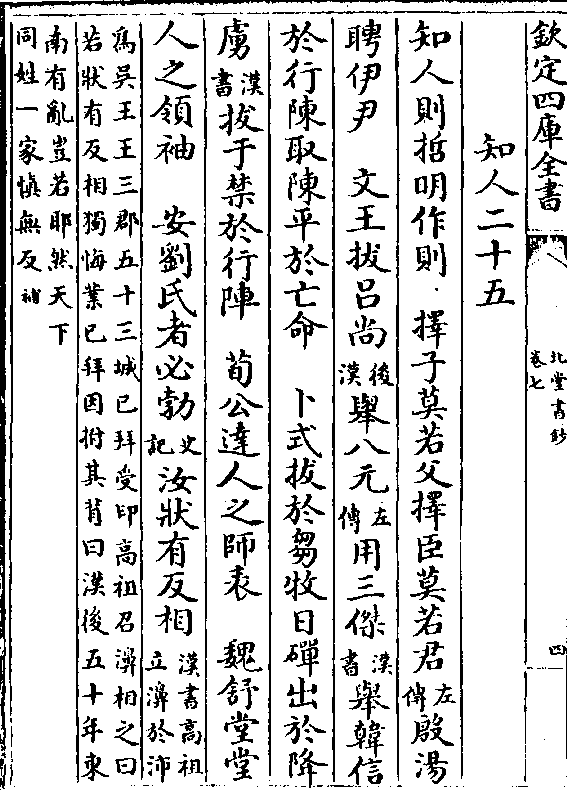 欽定四庫全書
北堂書鈔
卷七
四
知人二十五
知人則哲明作則　擇子莫若父擇臣莫若君左傳殷湯
聘伊尹　文王拔吕尚後漢舉八元左傳用三傑漢書舉韓信
於行陳取陳平於亡命　卜式拔於芻牧日磾出於降
虜漢書拔于禁於行陣　荀公達人之師表　魏舒堂堂
人之領袖　安劉氏者必勃史記汝狀有反相漢書高祖立濞於沛
為吳王王三郡五十三城已拜受印高祖召濞相之曰
若狀有反相獨悔業已拜因拊其背曰漢後五十年東
南有亂豈若耶然天下
同姓一家慎無反補